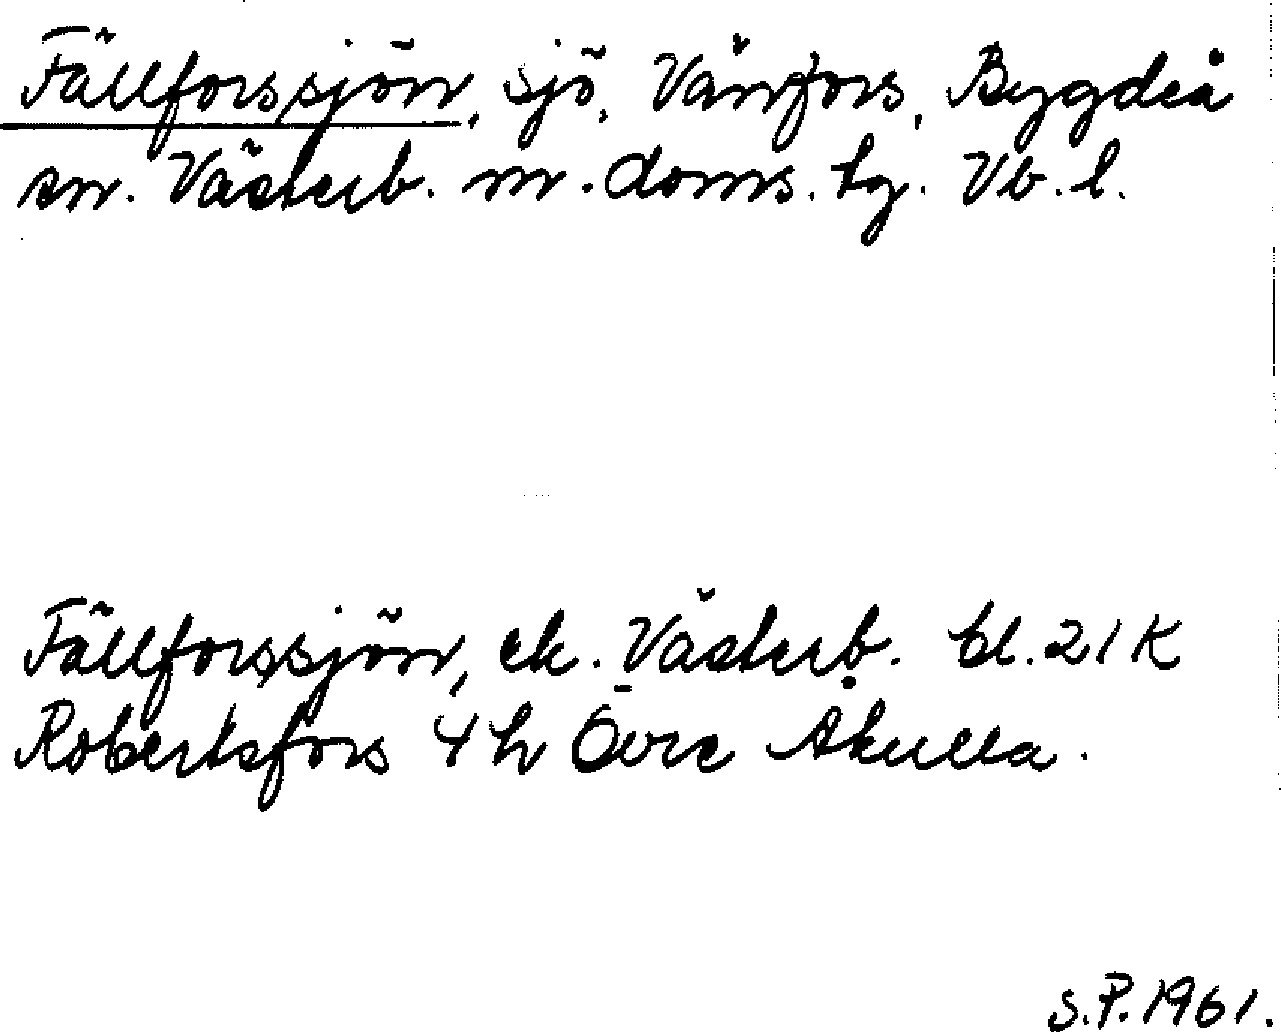 Fällforssjön, sjö, Vånfors, Bygdeå
sn. Västerb. m. doms. tg. Vb. l.
Fällforssjön, ek. Västerb. bl. 21 K
Robertsfors 4 h Övre Åkulla.
S.P. 1961.